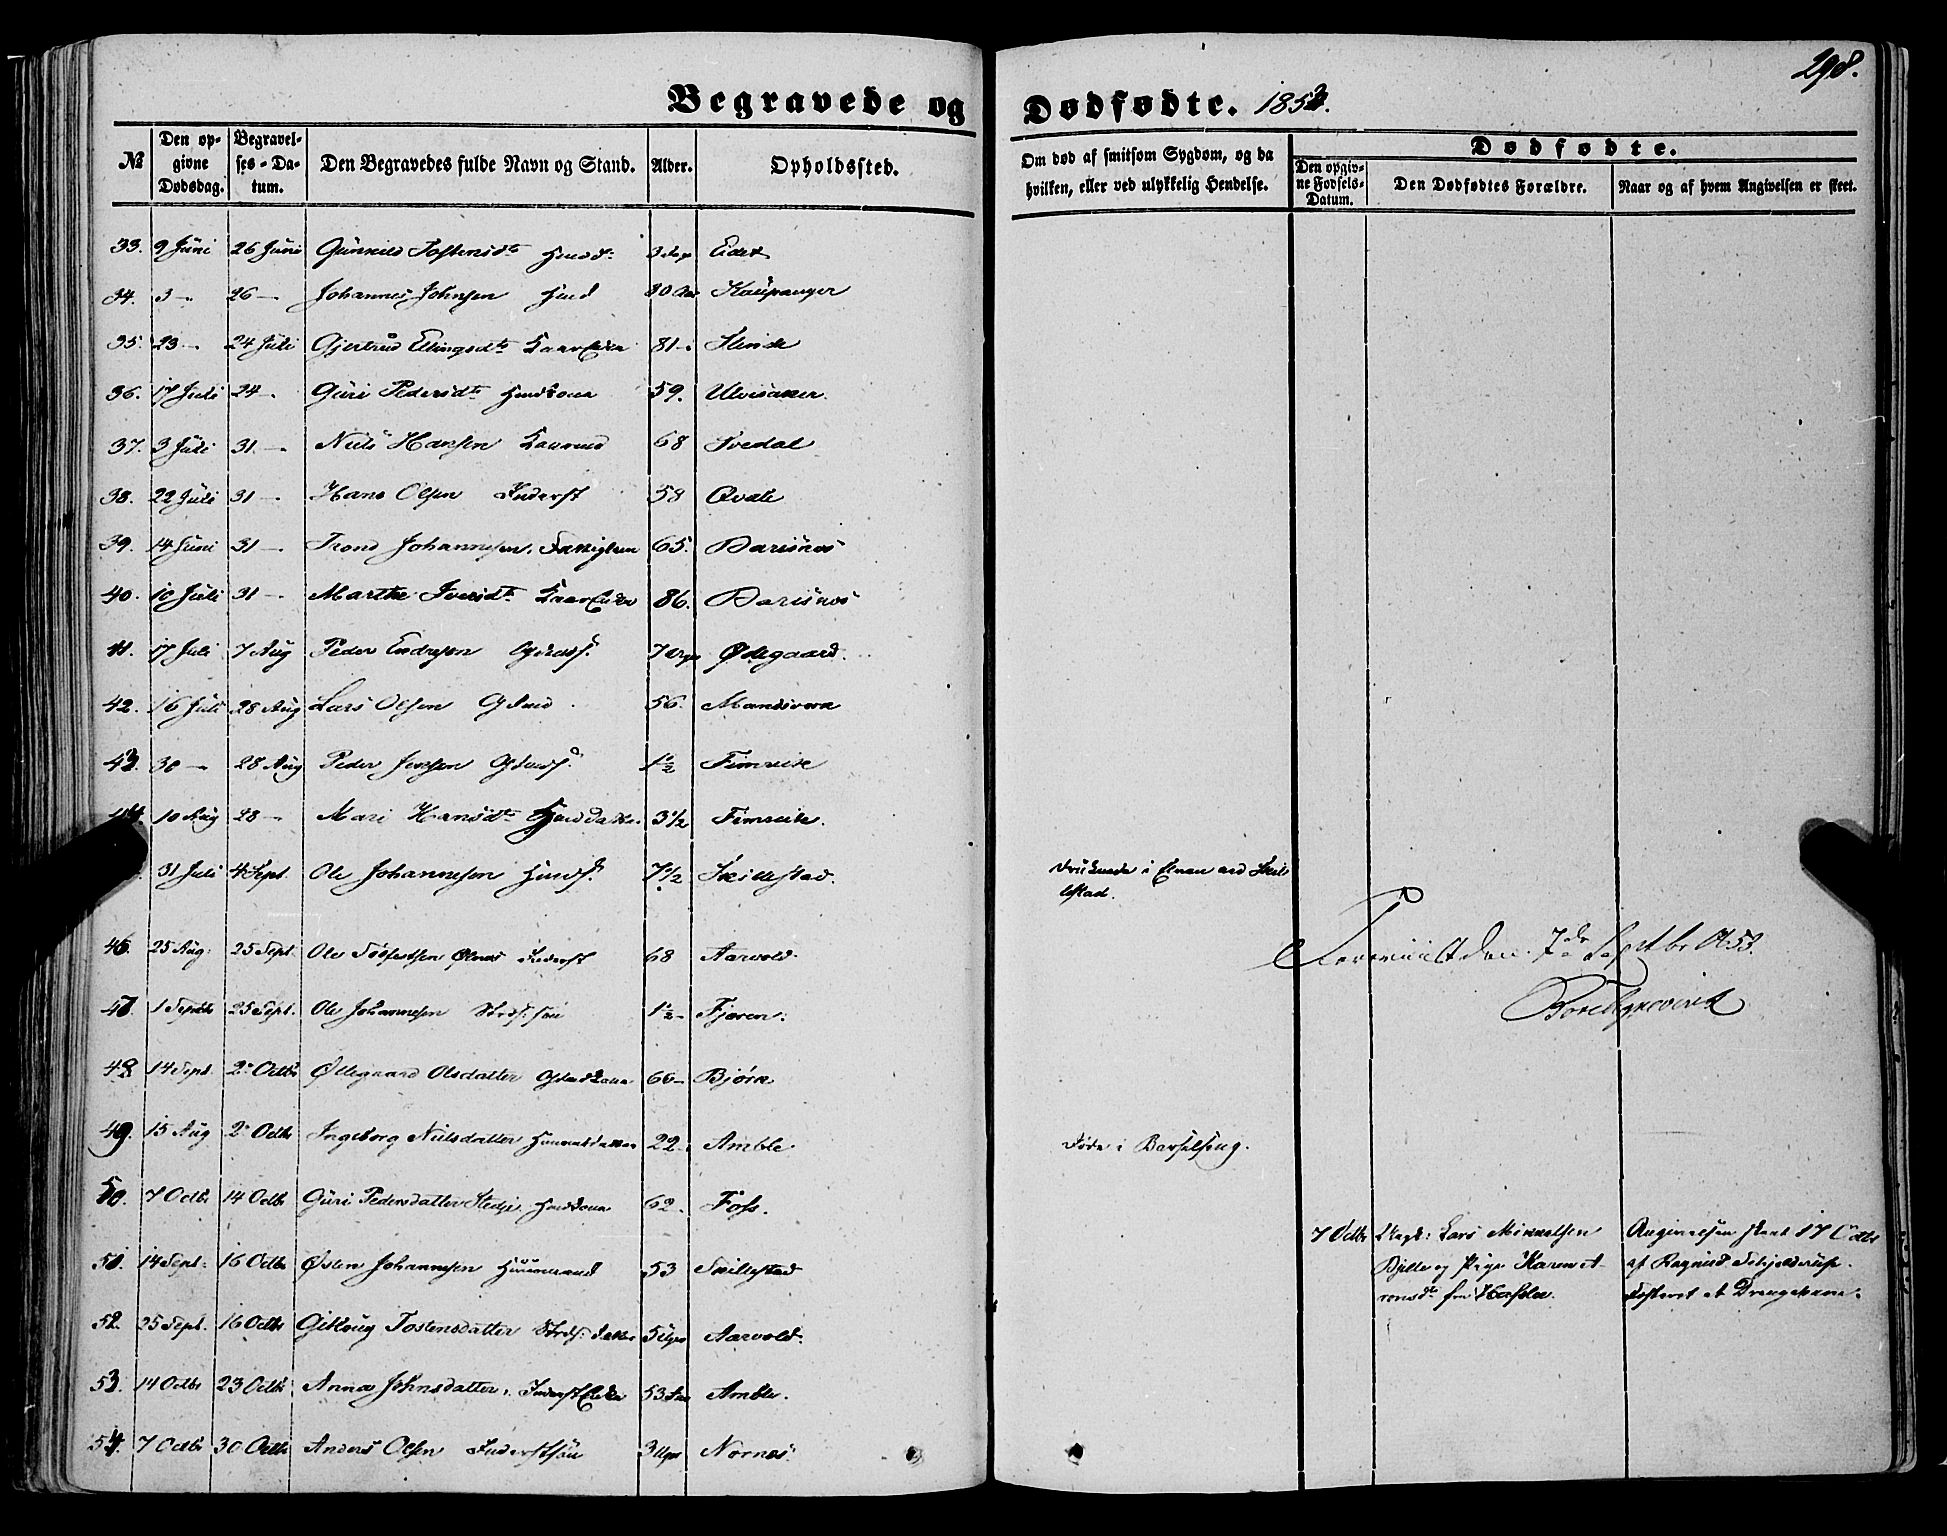 298.
Begravede og Dødfødte. 1853.
№ Den opgivne Dødsdag. Begravelses-Datum. Den Begravedes fulde Navn og Stand. Alder. Opholdssted. Om død af smitsom Sygdom, og da hvilken, eller ved ulykkelig Hendelse. Dødfødte. Den opgivne Fødsels-Datum. Den Dødfødtes Forældre. Naar og af hvem Angivelsen er skeet.
33. 9 Juni 26 Juni Gunnild Tostensdtr 3 Eidet
34. 3 — 26 — Johannes Johnsen Hmd 80 Aar Kaupanger
35. 23 — 24 Juli Gjertrud Ellingsdtr Kaarenke 81 — Slinde
36. 17 Juli 24 — Guri Pedersdtr Hmdkone 59. Ulvisaker.
37. 3 Juli 31. — Niels Hansen Kaarmd 68 Svedal
38. 22 Juli 31 — Hans Olsen Inderst 58 Qvale
39. 14 Juni 31 — Trond Johannesen. 65. Barsnes
40. 10 Juli 31 — Marthe Iversdtr Kaarenke 86. Barsnes
41. 17 Juli 7 Aug Peder Endresen Gdmds. 7 Uger Ødegaard.
42. 16 Juli 28 Aug Lars Olsen Gdmd 56.
43. 30 — 28 Aug Peder Jensen Gdmds. 1½ Fimreite
44. 10 Aug 28 — Mari Hansdtr Hmddatter. 3½ Fimreite.
31 Juli 4 Sept. Ole Johannesen Hmds. 7½ Skillestad. Druknede i Elven ved Skillestad.
46. 25 Aug. 25 Sept. Ole Inderst 68 Aarvold.
Revideret den 7de Septbr 1853.
47. 1 Septbr 25 Sept. Ole Johannesen Strds. søn 1½ — Fjæren.
48. 14 Sept. 2 Octbr Ødegaard Olsdatter Gdmdkone 66 — Bjørk
49. 15 Aug 2 Octbr Ingeborg Nielsdatter Huusmdsdatter 22 — Amble. Døde i Barselseng.
50. 7 Octbr 14 Octbr Guri Pedersdatter Stedje. Hmdkone 62. Foss.
7 Octbr Ungk: Lars Mikkelsen Angivelsen skeet 17 Octbr
Bjelde og Pige Karen A- af Ragnild Schjelderup.
ronsdtr fra Hafslo. Fosteret et Drengebarn.
51. 14 Sept. 16 Octbr Østen Johannesen Huusmand 53 Skillestad
52. 25 Sept. 16 Octbr Gitlaug Tostensdatter Strds. datter 5 Uger Aarvold.
53. 14 Octbr 23 Octbr Anna Johnsdatter. Inderst Enke 53 Aar Amble.
54. 7 Octbr 30 Octbr Anders Olsen Inderstsøn 3 Uger Nornes.